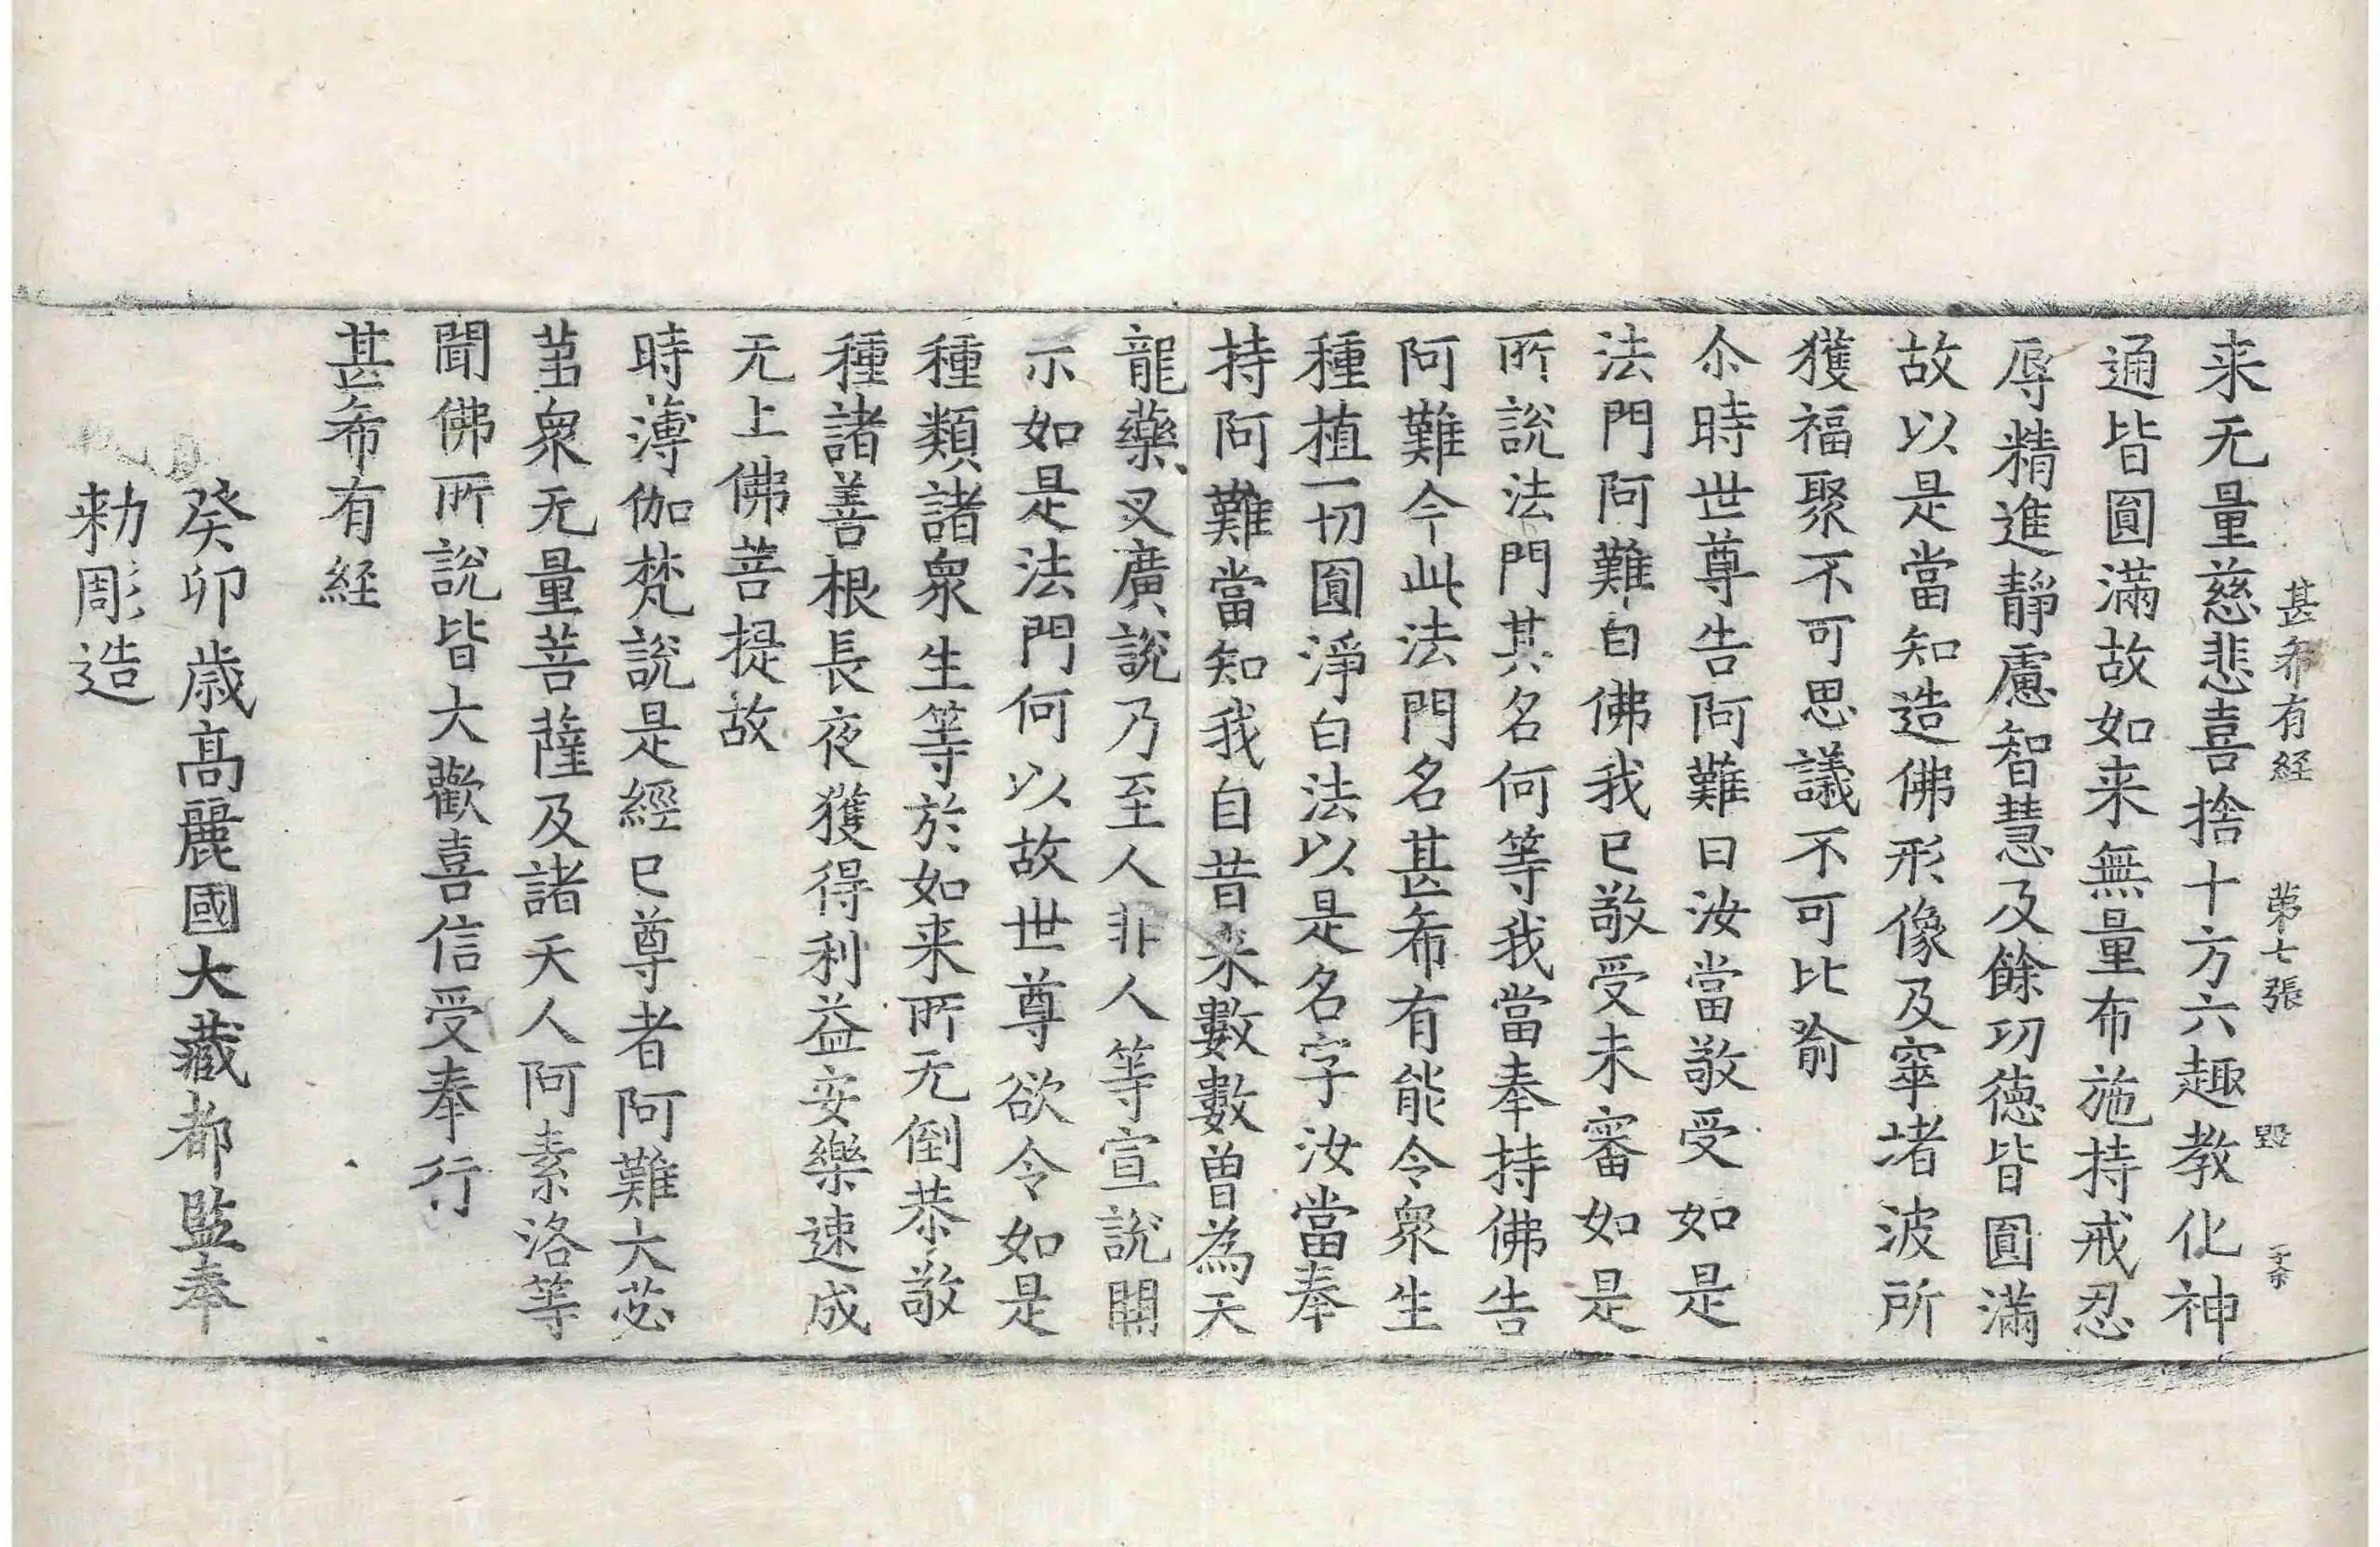 甚希有経 第七張 毀
来无量慈悲喜捨十方六趣教化神
通皆圎滿故如来無量布施持戒忍
辱精進靜慮智慧及餘功徳皆圎滿
故以是當知造佛形像及窣堵波所
獲福聚不可思議不可比喻
尒時世尊告阿難曰汝當敬受如是
法門阿難白佛我已敬受未審如是
所說法門其名何等我當奉持佛告
阿難今此法門名甚希有能令衆生
種植一切圎淨白法以是名字汝當奉
持阿難當知我自昔来數數曽為天
龍藥叉廣說乃至人非人等宣說開
示如是法門何以故世尊欲令如是
種類諸衆生等於如来所无倒恭敬
種諸善根長夜獲得利益安樂速成
无上佛菩提故
時薄伽梵說是經已尊者阿難大苾
芻衆无量菩薩及諸天人阿素洛等
聞佛所說皆大歡喜信受奉行
甚希有経
癸卯歳髙麗國大藏都監奉
勑彫造